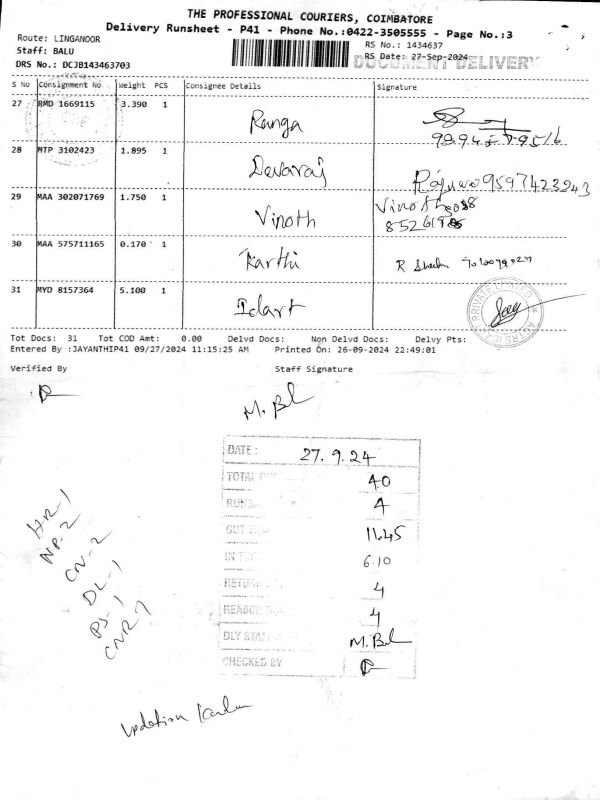 THE PROFESSIONAL COURIERS, COIMBATORE
Delivery Runsheet - P41 - Phone No.:0422-3505555 - Page No.:3
Route: LINGANOOR
RS No.: 1434637
Staff: BALU
RS Date: 27-Sep-2024
DOCUMENT DELIVERY
DRS No.: DCJB143463703
S No Consignment No Weight PCS Consignee Details Signature
27 RMD 1669115 3.390 1 Ranga
28 MTP 3102423 1.895 1 Devaraj 9597423943
29 MAA 302071769 1.750 1 Vinoth
30 MAA 575711165 0.170 1 Karthi
31 MYD 8157364 5.100 1 Idart
Tot Docs: 31 Tot COD Amt: 0.00 Delvd Docs: Non Delvd Docs: Delvy Pts:
Entered By :JAYANTHIP41 09/27/2024 11:15:25 AM Printed On: 26-09-2024 22:49:01
Verified By Staff Signature
M. Bal
DATE: 27.9.24
TOTAL 40
4
OUT 11.45
IN 6.10
RETURN 4
REASON 4
DLY STAFF M.Bal
CHECKED BY
HR-1
NP-2
CN-2
DL-1
PS-1
CNR 7
updation